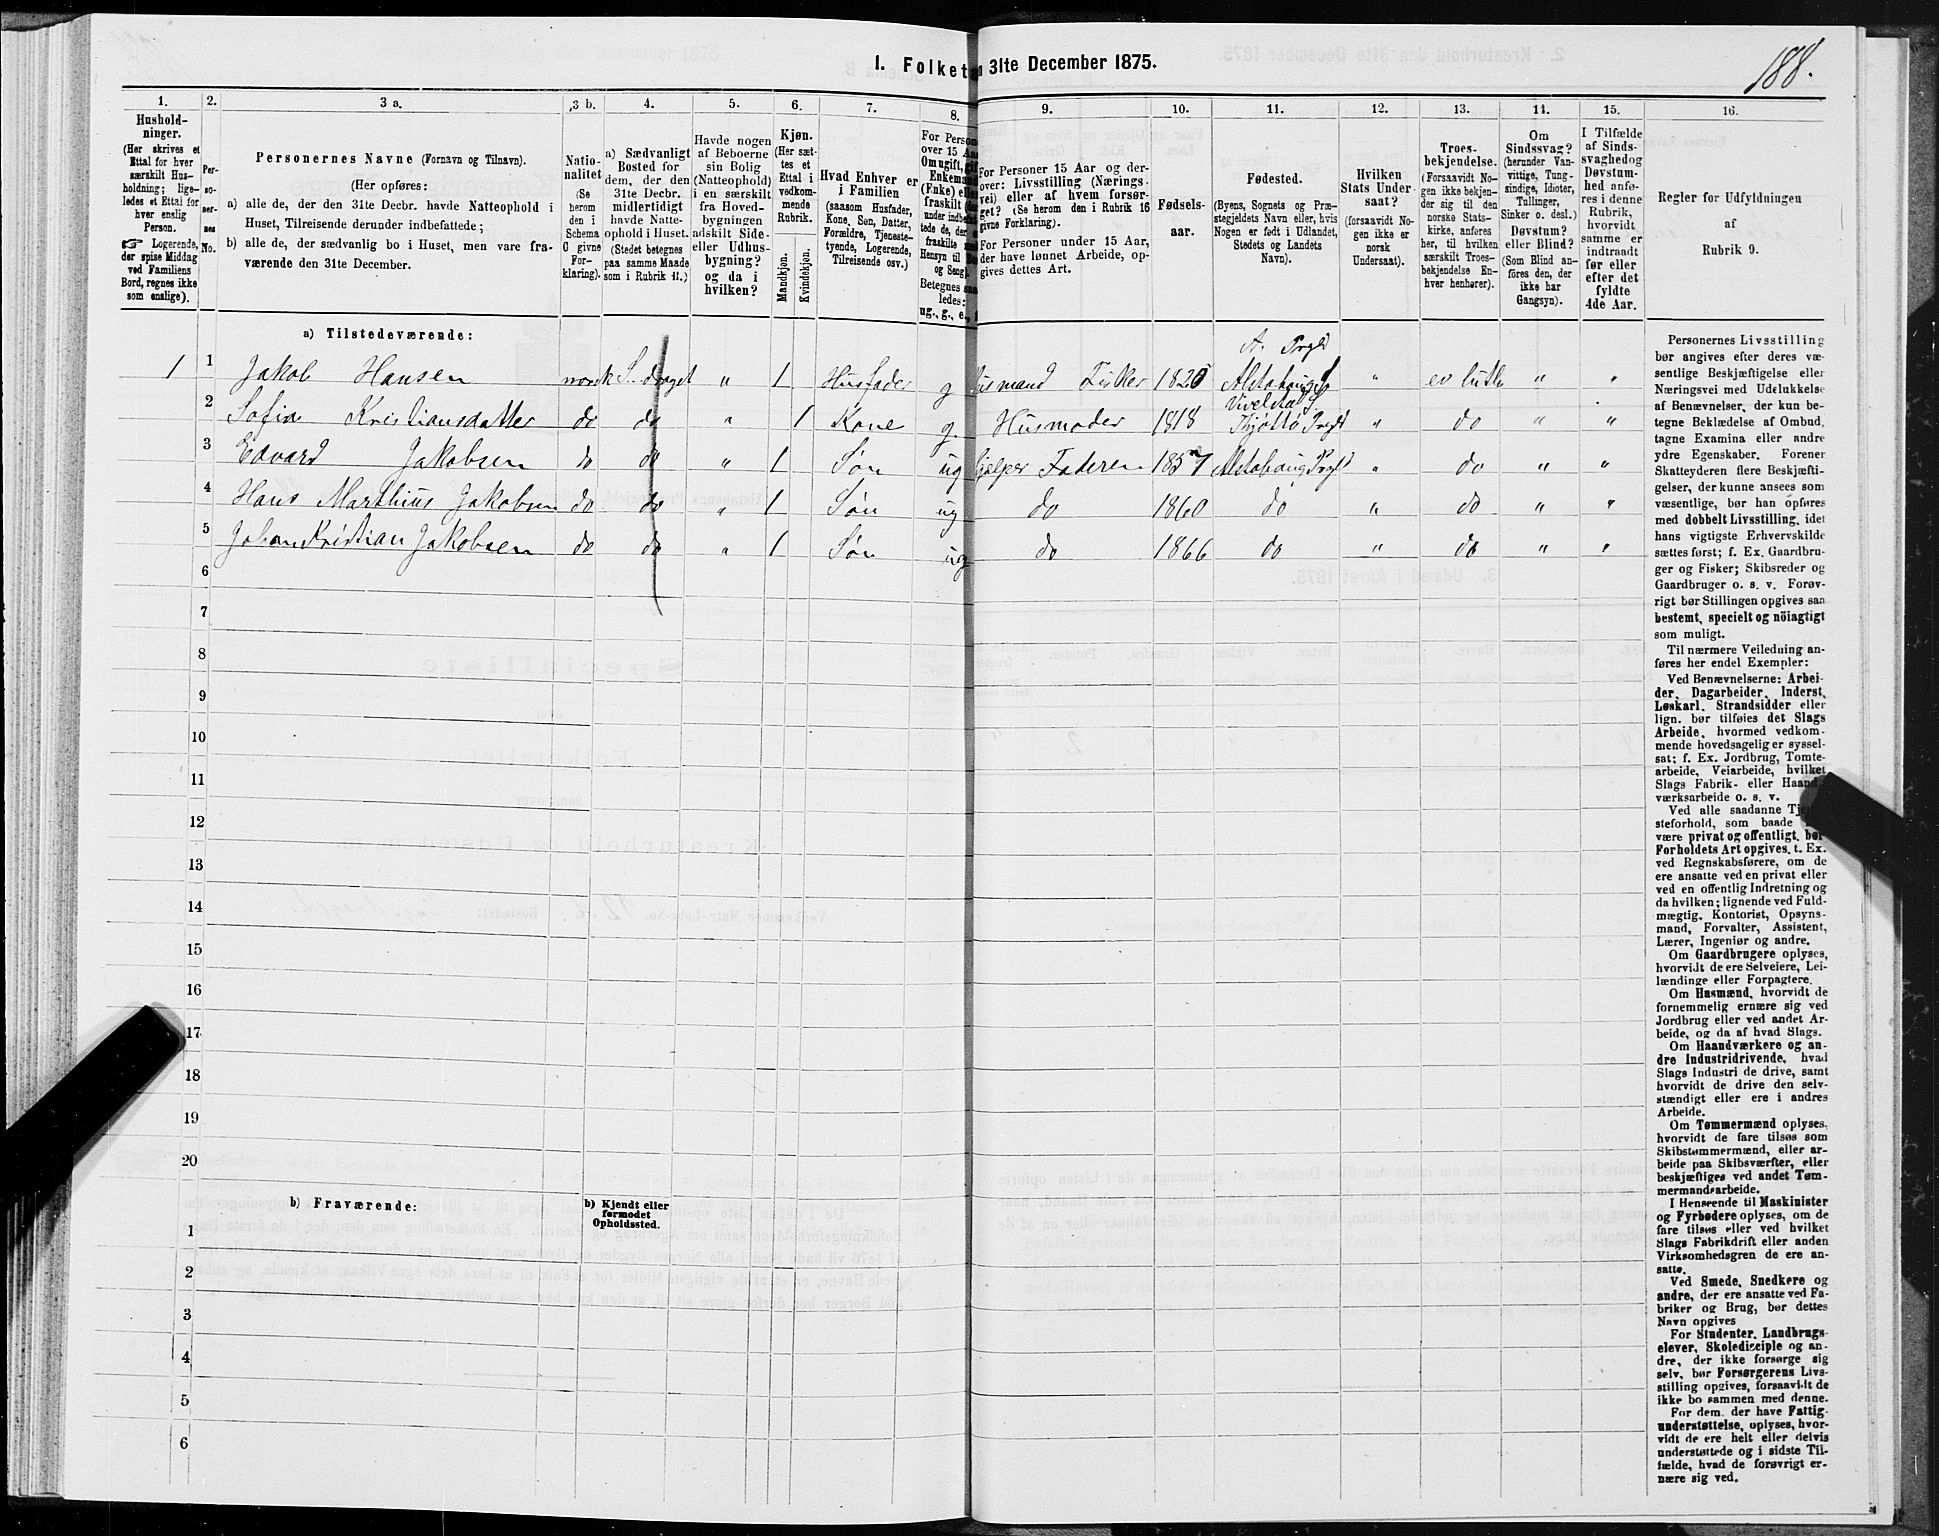 188.
1. Folketæ n 31te December 1875.
1. 2. 3 a. 3 b. 4. 5. 6. 7. 8. 9. 10. 11. 12. 13. 14. 15. 16.
Hushold-
ninger.
(Her skrives et
Ettal for hver
særskilt Hus-
holdning; lige-
ledes et Ettal for
hver enslig
Person.
☞ Logerende,
der spise Middag
ved Familiens
Bord, regnes ikke
som enslige).
Per-
so-
ner-
nes
No.
Personernes Navne (Fornavn og Tilnavn).
(Her opføres:
a) alle de, der den 31te Decbr. havde Natteophold i
Huset, Tilreisende derunder indbefattede;
b) alle de, der sædvanlig bo i Huset, men vare fra-
værende den 31te December.
Natio-
nalitet
(Se
herom
den i
Schema
C givne
For-
klaring).
a) Sædvanligt
Bosted for
dem, der den
31te Decbr.
midlertidigt
havde Natte-
ophold i Huset.
(Stedet betegnes
paa samme Maade
som i Rubrik 11.)
Havde nogen
af Beboerne
sin Bolig
(Natteophold)
i en særskilt
fra Hoved-
bygningen
adskilt Side-
eller Udhus-
bygning?
og da i
hvilken?
Kjøn.
(Her sæt-
tes et
Ettal i
vedkom-
mende
Rubrik.
Mandkjøn.
Kvindekjøn.
Hvad Enhver er
i Familien
(saasom Husfader,
Kone, Søn, Datter,
Forældre, Tjeneste-
tyende, Logerende,
Tilreisende osv.)
For Person
over 15 Aar
Omugift, gif
Enkemand
(Enke) elle
fraskilt
under indbefat-
tede de, de
fraskilte
Hensyn til
og Seng).
Betegnes saa
ledes:
ug., g., e.,
For Personer 15 Aar og der-
over: Livsstilling (Nærings-
vei) eller af hvem forsør-
get? (Se herom den i Rubrik 16
givne Forklaring).
For Personer under 15 Aar,
der have lønnet Arbeide, op-
gives dettes Art.
Fødsels-
aar.
Fødested.
(Byens, Sognets og Præ-
stegjeldets Navn eller, hvis
Nogen er født i Udlandet,
Stedets og Landets
Navn).
Hvilken
Stats Under-
saat?
(forsaavidt No-
gen ikke er
norsk
Undersaat).
Troes-
bekjendelse.
(Forsaavidt No-
gen ikke bekjen-
der sig til den
norske Stats-
kirke, anføres
her, til hvilken
særskilt Troes-
bekjendelse En-
hver henhører).
Om
Sindssvag?
(herunder Van-
vittige, Tung-
sindige, Idioter,
Tullinger,
Sinker o. desl.)
Døvstum?
eller Blind?
(Som Blind an-
føres den, der
ikke har
Gangsyn).
I Tilfælde
af Sinds-
svaghed og
Døvstum-
hed anfø-
res i denne
Rubrik,
hvorvidt
samme er
indtraadt
før eller
efter det
fyldte
4de Aar.
Regler for Udfyldningen
af
Rubrik 9.
a) Tilstedeværende:
A. Prgld
1 1 Jakob Hansen norsk S. draget " 1 Husfader g Husmand Fisker 1820 Alstahaug S " ev luth " "
Vivelstad S.
2 Sofia Kristiansdatter do do " 1 Kone g. Husmoder 1818 Thjøttø Prgld " do " "
3 Edvard Jakobsen do do " 1 Søn ug hjelper Faderen 1857 Alstahaug Prgld " do " "
4 Hans Marthius Jakobsen do do " 1 Søn ug do 1860 do " do " "
5 Johan Kristian Jakobsen do do " 1 Søn ug do 1866 do " do " "
6
7
8
9
10
11
12
13
14
15
16
17
18
19
20
b) Fraværende: b) Kjendt eller
formodet
Opholdssted.
1
2
3
4
5
6
Personernes Livsstilling
bør angives efter deres væ-
sentlige Beskjæftigelse eller
Næringsvei med Udelukkelse
af Benævnelser, der kun be-
tegne Beklædelse af Ombud,
tagne Examina eller andre
ydre Egenskaber. Forener
Skatteyderen flere Beskjæfti-
gelser, der kunne ansees som
væsentlige, bør han opføres
med dobbelt Livsstilling, idet
hans vigtigste Erhvervskilde
sættes først; f. Ex. Gaardbru-
ger og Fisker; Skibsreder og
Gaardbruger o. s. v. Forøv-
rigt bør Stillingen opgives saa
bestemt, specielt og nöiagtigt
som muligt.
Til nærmere Veiledning an-
føres her endel Exempler:
Ved Benævnelserne: Arbei-
der, Dagarbeider, Inderst,
Løskarl, Strandsidder eller
lign. bør tilføies det Slags
Arbeide, hvormed vedkom-
mende hovedsagelig er syssel-
sat; f. Ex. Jordbrug, Tomte-
arbeide, Veiarbeide, hvilket
Slags Fabrik- eller Haand-
værksarbeide o. s. v.
Ved alle saadanne Tje
steforhold, som baade
være privat og offentligt, bør
Forholdets Art opgives, t. Ex.
ved Regnskabsførere, om de
ere ansatte ved en privat eller
ved en offentlig Indretning og
da hvilken; lignende ved Fuld-
mægtig, Kontorist, Opsyns-
mand, Forvalter, Assistent,
Lærer, Ingeniør og andre.
Om Gaardbrugere oplyses,
hvorvidt de ere Selveiere, Lei-
lændinge eller Forpagtere.
Om Husmænd, hvorvidt de
fornemmelig ernære sig ved
Jordbrug eller ved andet Ar-
beide, og da af hvad Slags.
Om Haandværkere og an-
dre Industridrivende, hvad
Slags Industri de drive, samt
hvorvidt de drive den selv-
stændigt eller ere i andres
Arbeide.
Om Tømmermænd oplyses,
hvorvidt de fare tilsøs som
Skibstømmermænd, eller ar-
beide paa Skibsværfter, eller
beskjæftiges ved andet Tøm-
mermandsarbeide.
I Henseende til Maskinister
og Fyrbødere oplyses, om de
fare tilsøs eller ved hvilket
Slags Fabrikdrift eller anden
Virksomhedsgren de ere an-
satte.
Ved Smede, Snedkere og
andre, der ere ansatte ved Fa-
briker og Brug, bør dettes
Navn opgives
For Studenter, Landbrugs-
elever, Skoledisciple og an-
dre, der ikke forsørge sig
selv, bør Forsørgerens Livs-
stilling opgives, forsaavidt de
ikke bo sammen med denne.
For dem, der have Fattig-
understøttelse, oplyses, hvor-
vidt de ere helt eller delvis
understøttede og i sidste Til-
fælde, hvad de forøvrigt er-
nære sig ved.